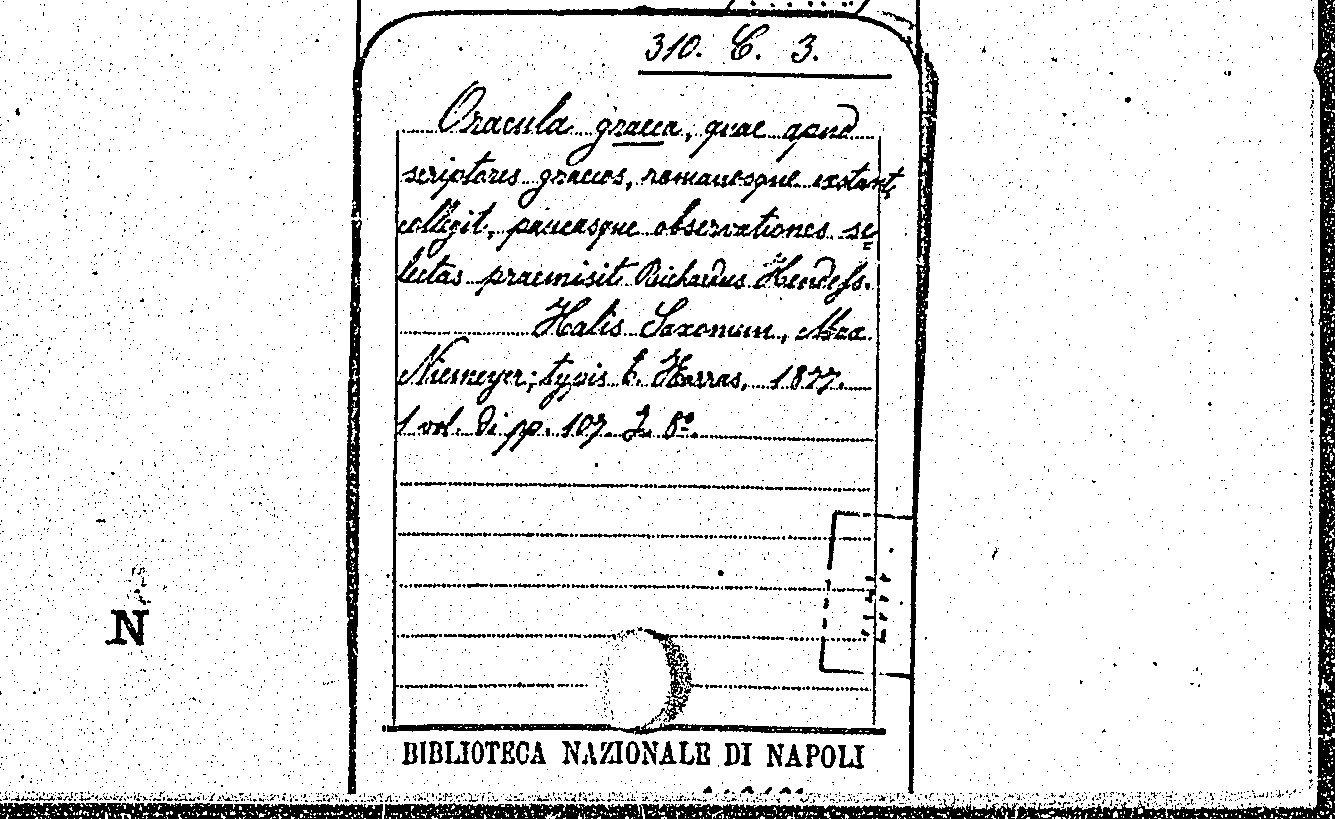 310. C. 3.
Oracula graeca, quae apud
scriptores graecos, romanosque exstant,
collegit, paucasque observationes se
lectas praemisit Richardus Hendess.
Halis Saxonum, Max
Niemeyer; typis E. Karras, 1877.
1 vol. di pp. 107. I. 8º.
N
BIBLIOTECA NAZIONALE DI NAPOLI